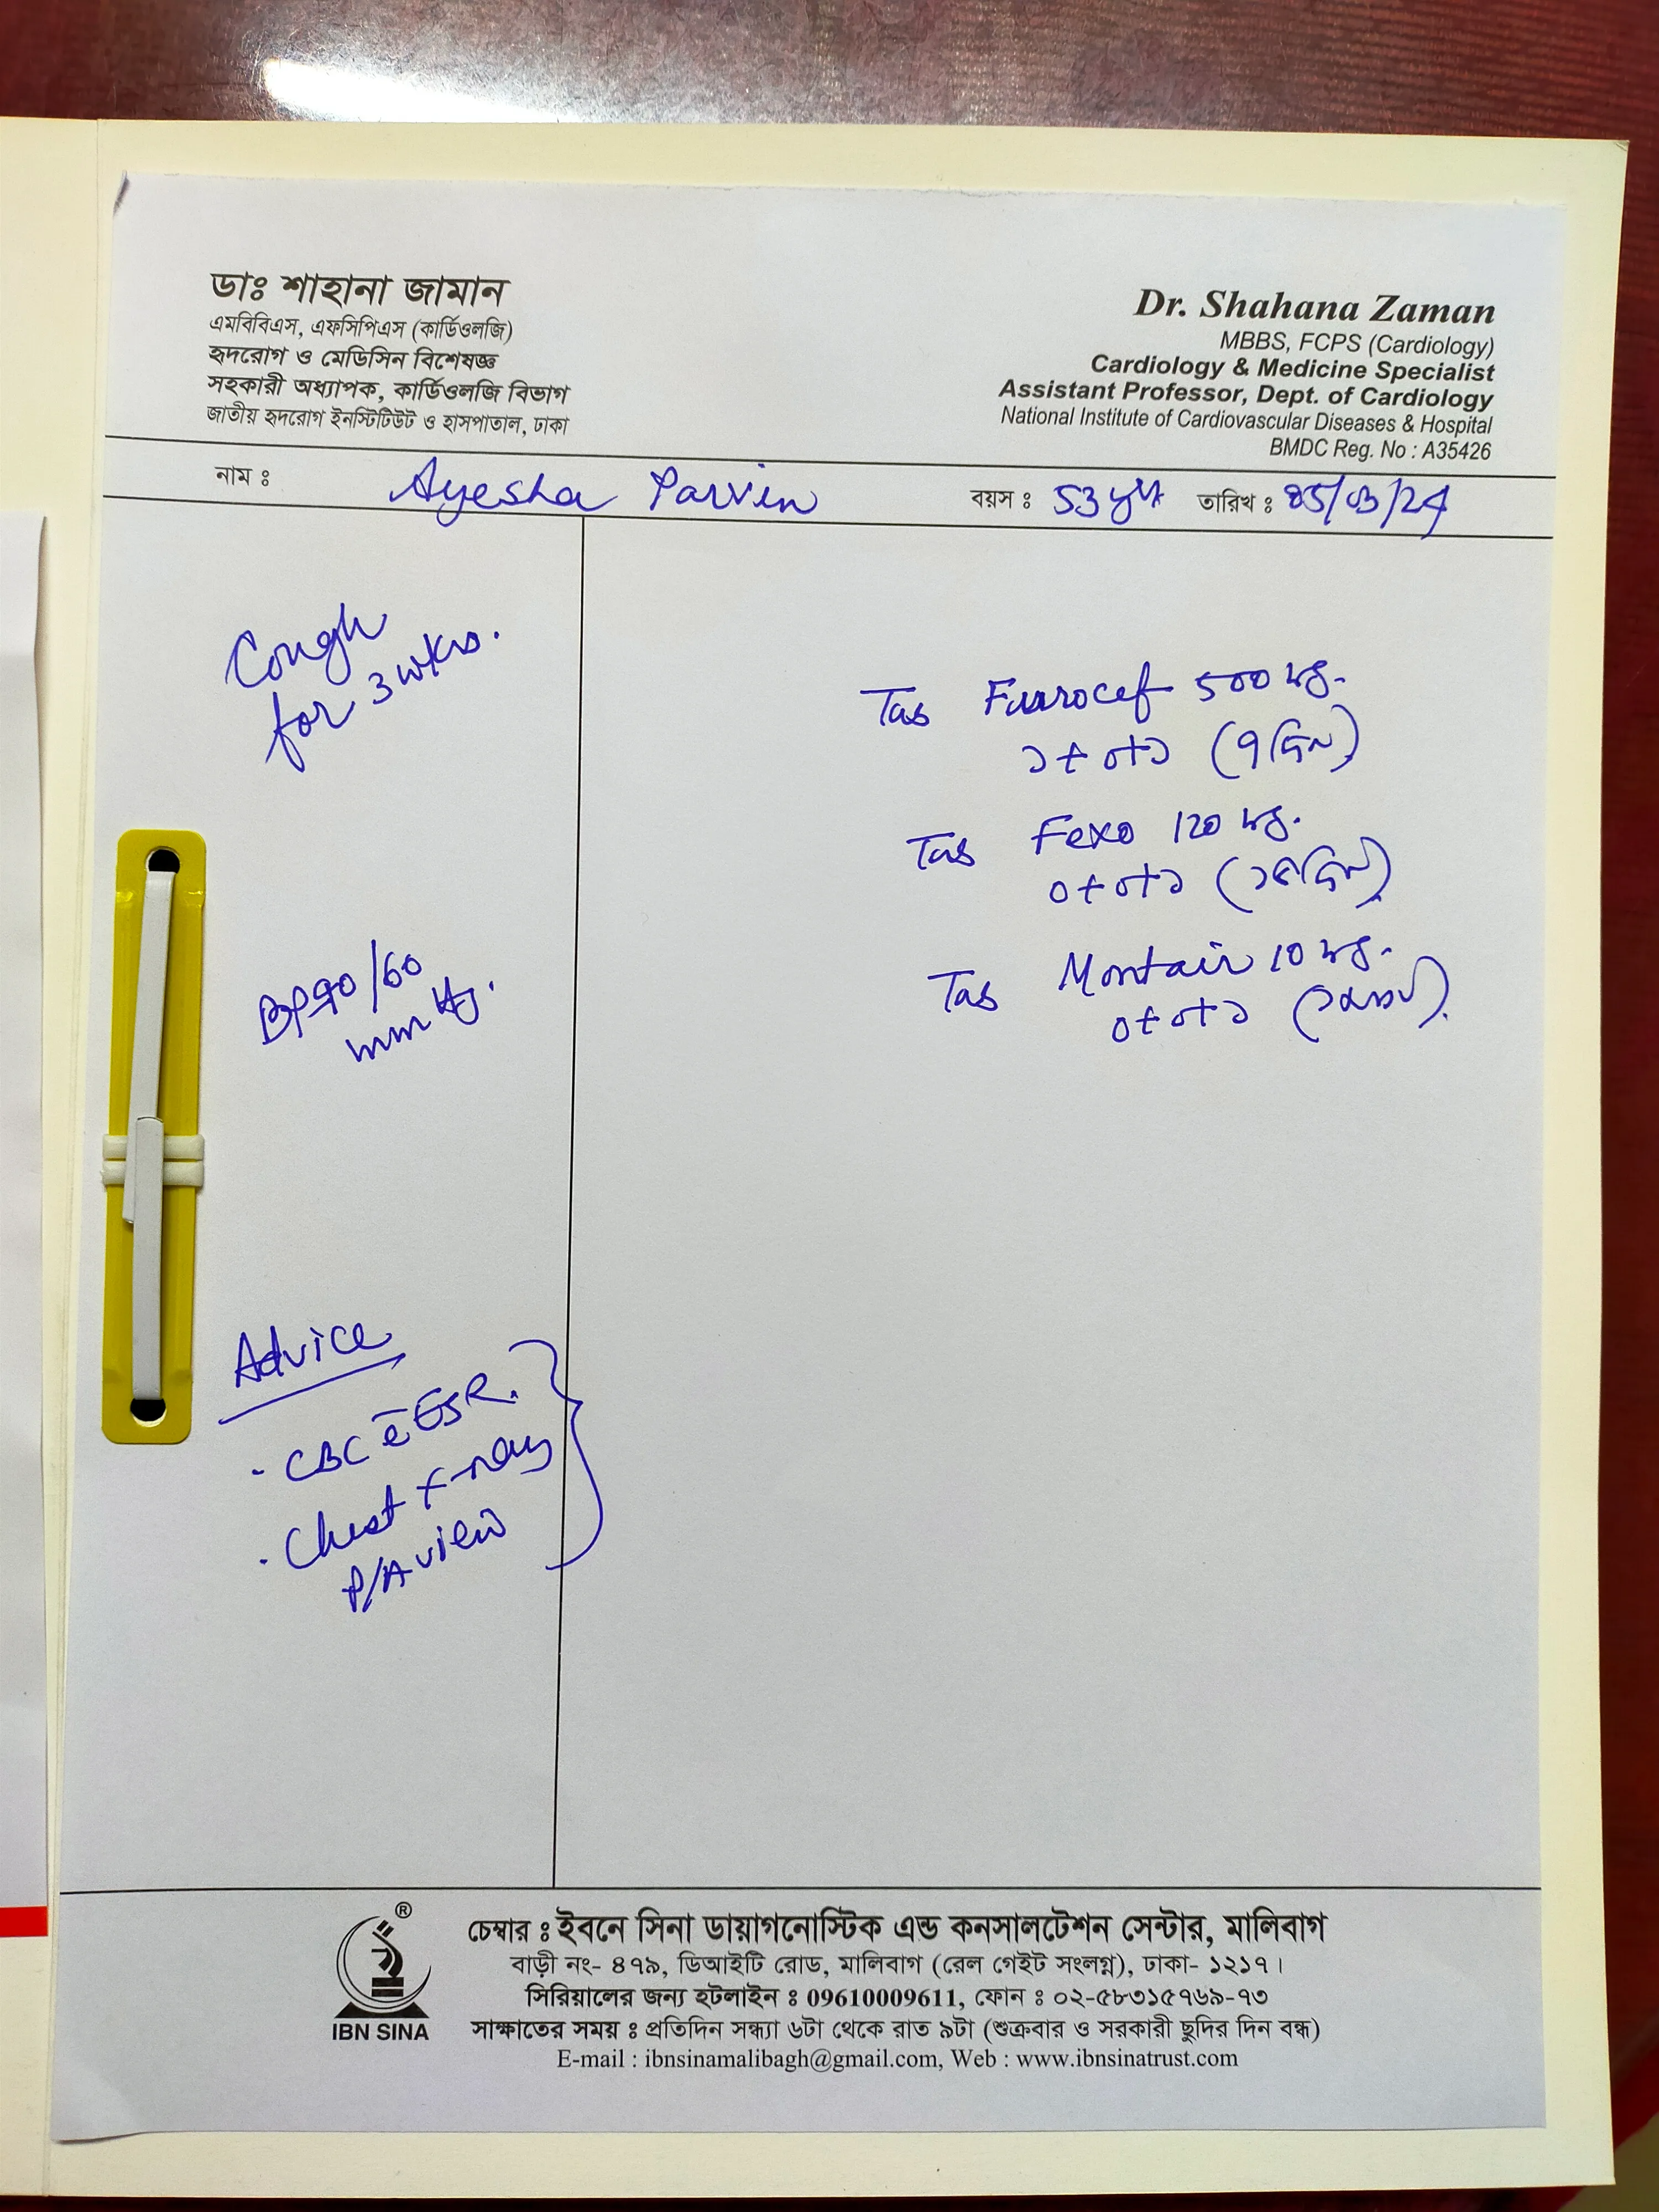 ডাঃ শাহানা জামান
এমবিবিএস, এফসিপিএস (কার্ডিওলজি)
হৃদরোগ ও মেডিসিন বিশেষজ্ঞ
সহকারী অধ্যাপক, কার্ডিওলজি বিভাগ
জাতীয় হৃদরোগ ইনস্টিটিউট ও হাসপাতাল, ঢাকা
Dr. Shahana Zaman
MBBS, FCPS (Cardiology)
Cardiology & Medicine Specialist
Assistant Professor, Dept. of Cardiology
National Institute of Cardiovascular Diseases & Hospital
BMDC Reg. No : A35426
নাম ঃ Ayesha Parvin বয়স ঃ 53 তারিখ ঃ
Cough
for 3 wks.
BP 90/60
mmHg.
Advice
· CBC ē ESR.
· Chest X-ray
P/A view
Tab 500 mg.
১+০+১ (৭ দিন)
Tab Fexo 120 mg.
০+০+১ (১৫ দিন)
Tab Montair 10 mg.
০+০+১
®
IBN SINA
চেম্বার ঃ ইবনে সিনা ডায়াগনোস্টিক এন্ড কনসালটেশন সেন্টার, মালিবাগ
বাড়ী নং- ৪৭৯, ডিআইটি রোড, মালিবাগ (রেল গেইট সংলগ্ন), ঢাকা- ১২১৭।
সিরিয়ালের জন্য হটলাইন ঃ 09610009611, ফোন ঃ ০২-৫৮৩১৫৭৬৯-৭৩
সাক্ষাতের সময় ঃ প্রতিদিন সন্ধ্যা ৬টা থেকে রাত ৯টা (শুক্রবার ও সরকারী ছুদির দিন বন্ধ)
E-mail : ibnsinamalibagh@gmail.com, Web : www.ibnsinatrust.com